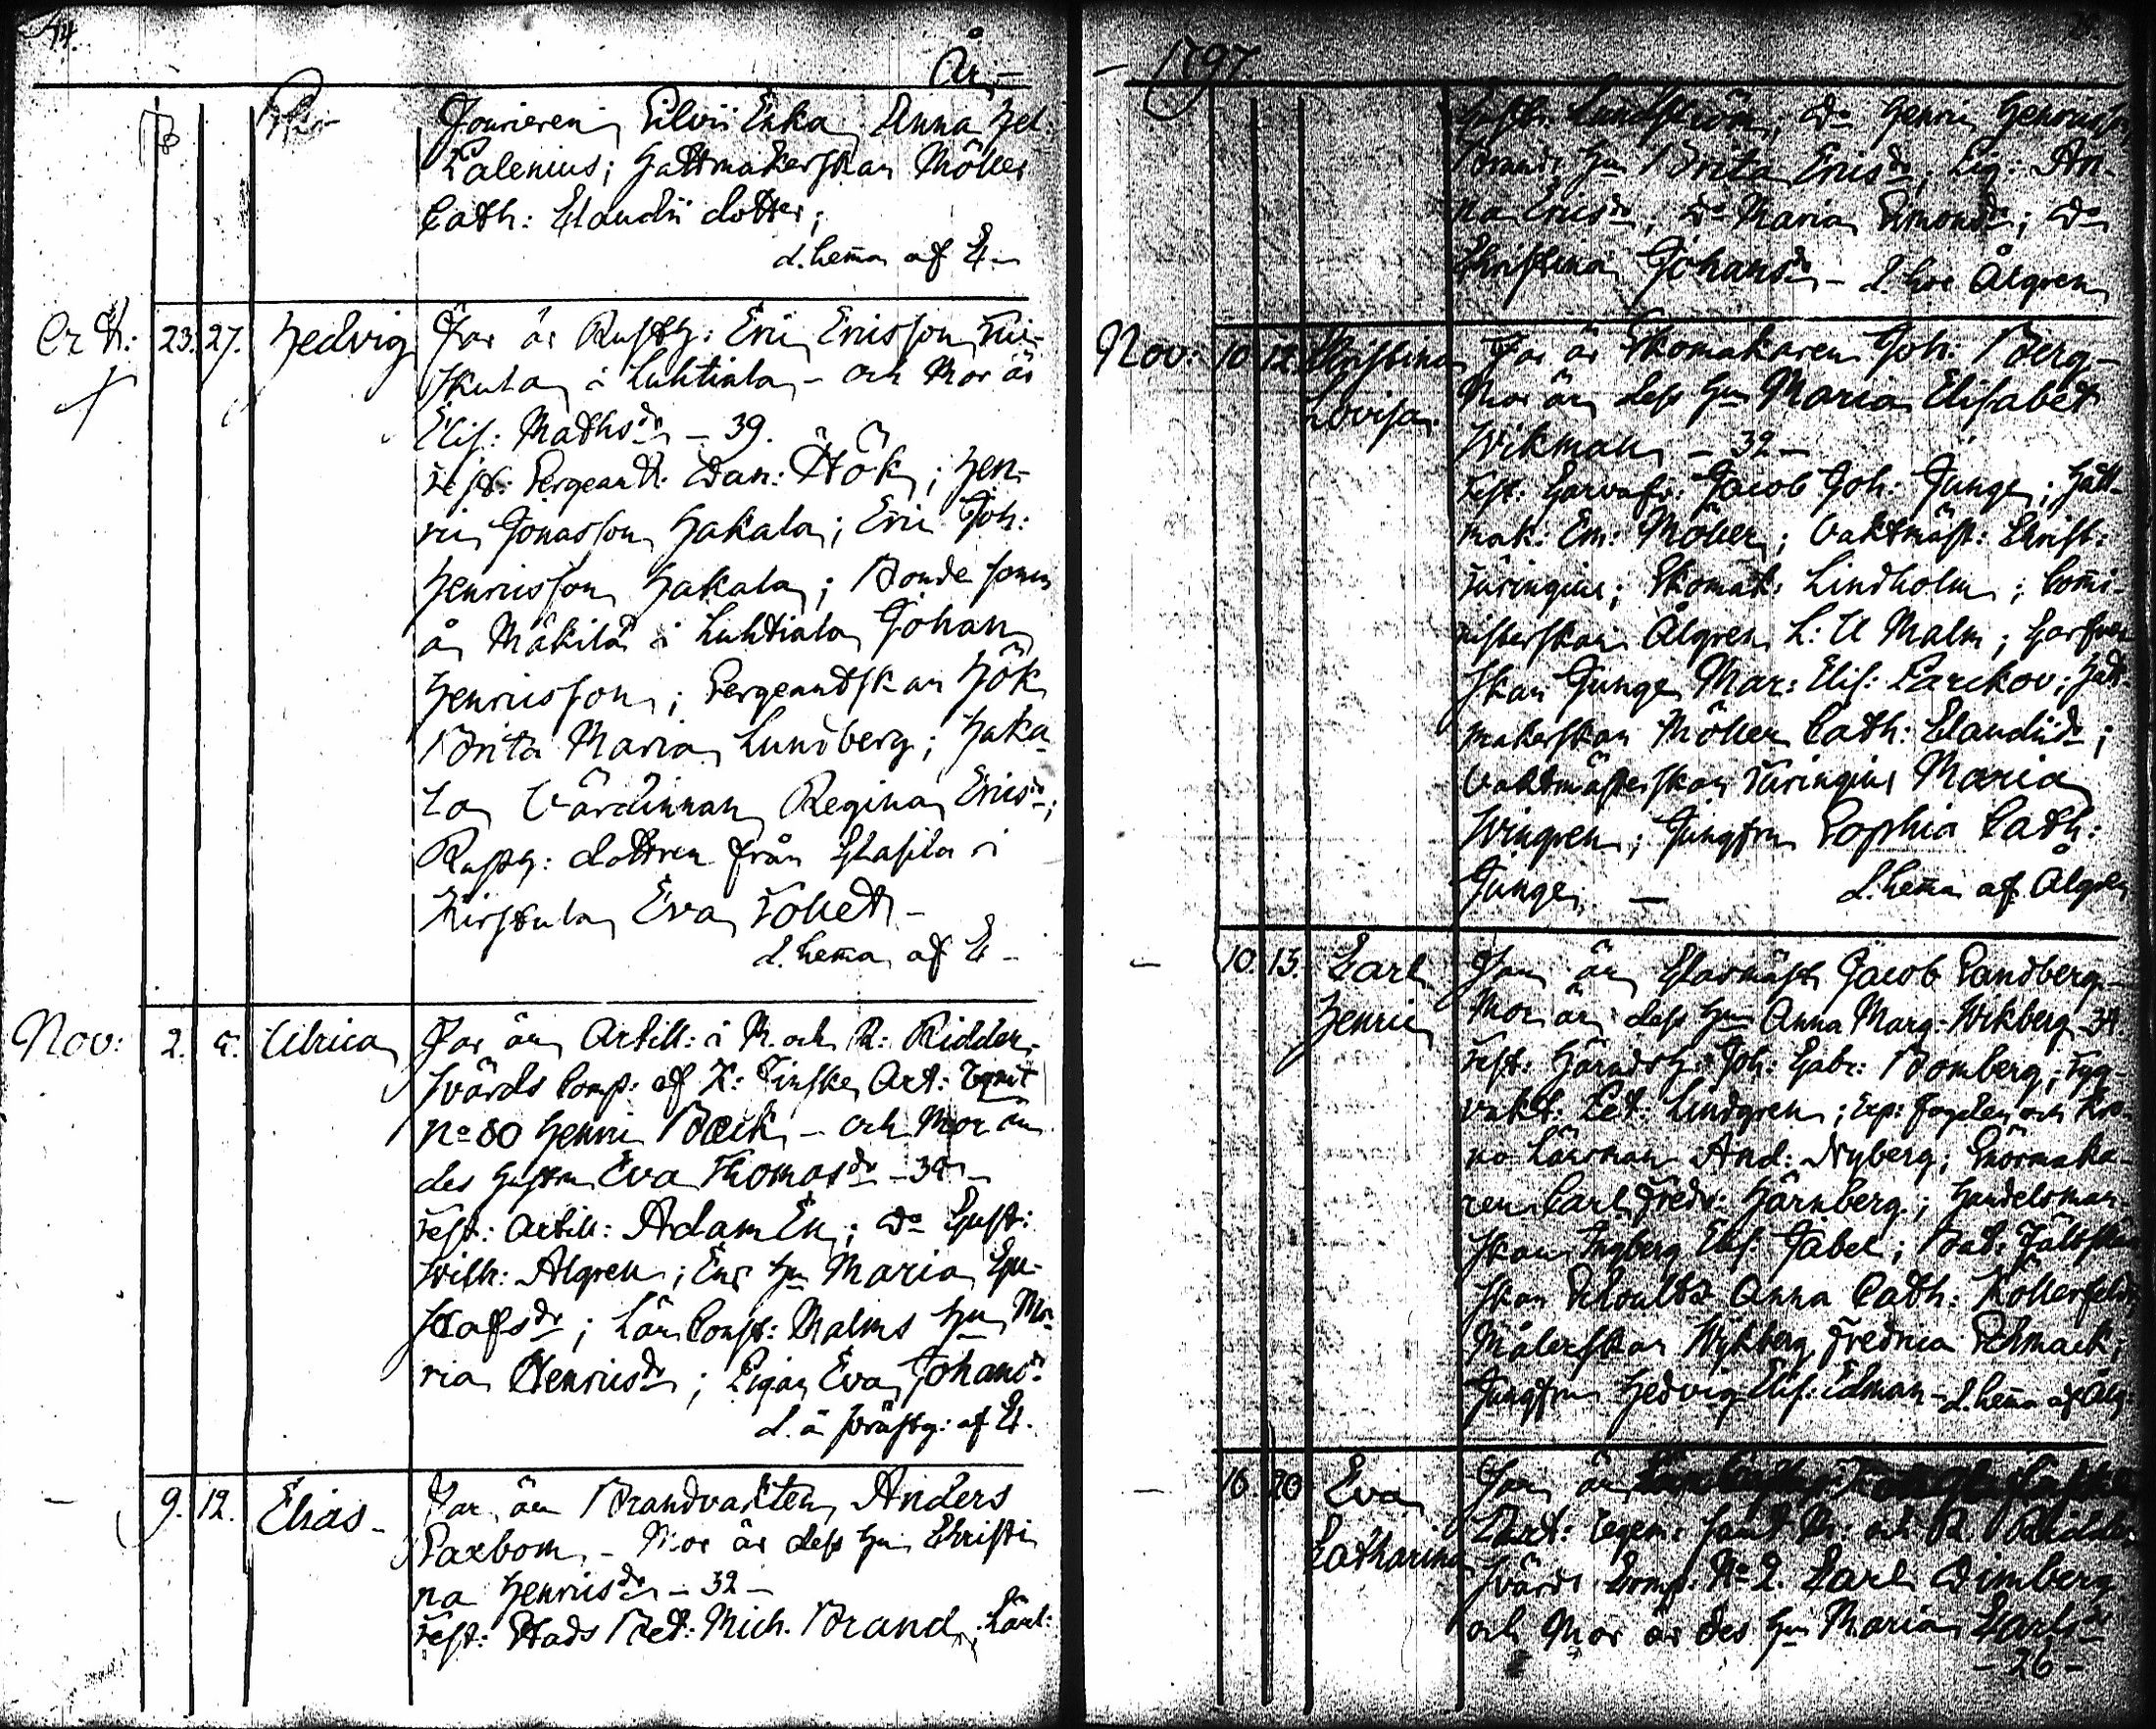 74.
År
Fourieren Silvii Enka Anna Hel:
Calenius; Hattmakerskan Möller
Cath: Claudii dotter;
d. hema af E
Oct: 23. 27. Hedvig Far är Rusth: Eric Ericsson
skula i Luhtiala - och Mor är
Elis: Mathsdr - 39.
Test: Sergeant: Dan: Hök; Hen-
ric Jonasson Hakala; Eric Joh:
Henricsson Hakala; Bonde sonen
å Mäkilä i Luhtiala Johan
Henricsson; Sergeantskan Hök
Brita Maria Lundberg; Haka
la Värdinnan Regina Ericsdr;
Rusth: dottren från i
Kirstula Eva Tollet -
d. hema af E -
Nov: 2. 5. Ulrica Far är Artill: i M. och R: Ridder-
svärds Comp: af K: Finska Art: Regmt
No 80 Henric Bäck - och Mor är
des Hustru Eva Thomasdr - 34 -
Test: Artill: Adam Ek; Do Gust:
Wilh: Algren; Eks Hu Maria Gu-
stafsdr; Malms Hu Ma-
ria Henricsdr; Pigan Eva Johansdr
d. i prästg: af E.
- 9. 12. Elias - Far är Brandvakten Anders
Saxbom - Mor är dess Hu Christi
na Henricsdr - 32 -
Test: Stads Bet: Mich. Brand;
- 1797.
Lundström; Do Henric Henricsson
Brands Hu Brita Ericsdr; Pig: An-
na Ericsdr; Do Maria Simonsdr; Do
Christina Johansdr - d. hos Ålgren
Nov: 10 12 Christina Far är Skomakaren Joh: Berg -
Lovisa Mor är dess Hu Maria Elisabet
Wikman - 32 -
Test: Garvafv: Jacob Joh: Junge; Hatt-
mak: Em: Möller; Vaktmäst: Christ:
Turingius; Skomak: Lindholm; Comi-
nisterskan Ålgren L: U Malm; Garfvar
skan Junge Mar: Elis: Parckov; Hatt-
makerskan Möller Cath: Claudiidr;
Vaktmästerskan Turingius Maria
Wingren; Jungfru Sophia Cath:
Junge - d. hema af Ålgren
- 10. 13. Carl Far är Glasmäst Jacob Sandberg -
Henric Mor är dess Hu Anna Marg: Wikberg - 34.
Test: Häradsh: Joh: Gabr: Bomberg; Tyg-
vakt: Pet: Lindgren; Exp: Fogden och Kro-
no Länsman And: Nyberg; Snörmaka-
ren Carl Fredr: Härnberg; Handelsman
skan Ingberg Elis: Jabel; Bat: Fältskär
skan Schoultz Anna Cath: Kollerfeldt
Målerskan Wykberg Fredrica Schmack;
Jungfru Hedvig Elis: Edman - d. hema af Ålg
- 16. 20 Eva Far är
Catharina Art: Regem: samt M: och R Ridder
svärds Comp: No 2. Carl Dimberg
och Mor är des Hu Maria Carlsdr
- 26 -